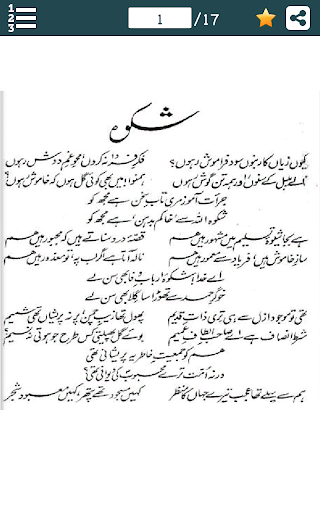 1 /17
شکوہ
کیوں زیاں کار بنوں سود فراموش رہوں؟ فکرِ فردا نہ کروں، محوِ غمِ دوش رہوں
نالے بلبل کے سنوں، اور ہمہ تن گوش رہوں ہمنوا! میں بھی کوئی گل ہوں کہ خاموش رہوں؟
جرأت آموز مری تابِ سخن ہے مجھ کو
شکوہ اللہ سے خاکم بدہن ہے مجھ کو
ہے بجا شیوۂ تسلیم میں مشہور ہیں ہم قصۂ درد سناتے ہیں کہ مجبور ہیں ہم
سازِ خاموش ہیں، فریاد سے معمور ہیں ہم نالہ آتا ہے اگر لب پہ تو معذور ہیں ہم
اے خدا! شکوۂ اربابِ وفا بھی سن لے
خوگرِ حمد سے تھوڑا سا گلا بھی سن لے
تھی تو موجود ازل سے ہی تری ذاتِ قدیم پھول تھا زیبِ چمن، پر نہ پریشاں تھی شمیم
شرط انصاف ہے اے صاحبِ الطافِ عمیم بوئے گل پھیلتی کس طرح جو ہوتی نہ نسیم؟
ہم کو جمعیتِ خاطر یہ پریشانی تھی
ورنہ اُمت ترے محبوب کی دیوانی تھی؟
ہم سے پہلے تھا عجب تیرے جہاں کا منظر کہیں مسجود تھے پتھر، کہیں معبود شجر